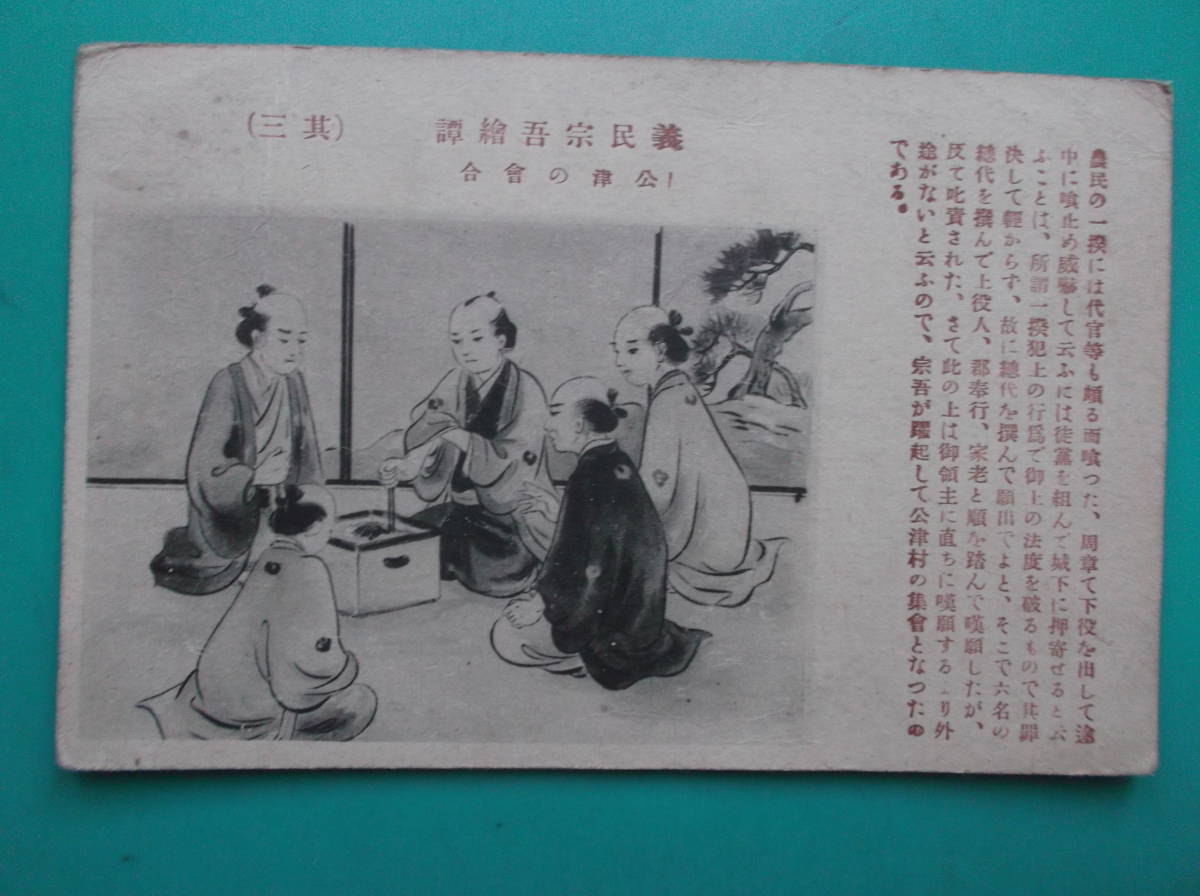 義民宗吾繪譚 (其三)
公津の會合
農民の一揆には代官等も頗る面喰つた、周章て下役を出して途
中に喰止め威嚇して云ふには徒黨を組んで城下に押寄せると云
ふことは、所謂一揆犯上の行爲で御上の法度を破るもので其罪
決して輕からず、故に總代を撰んで願出でよと、そこで六名の
總代を撰んで上役人、郡奉行、家老と順を踏んで嘆願したが、
反て叱責された、さて此の上は御領主に直ちに嘆願するより外
途がないと云ふので、宗吾が躍起して公津村の集會となつたの
である。